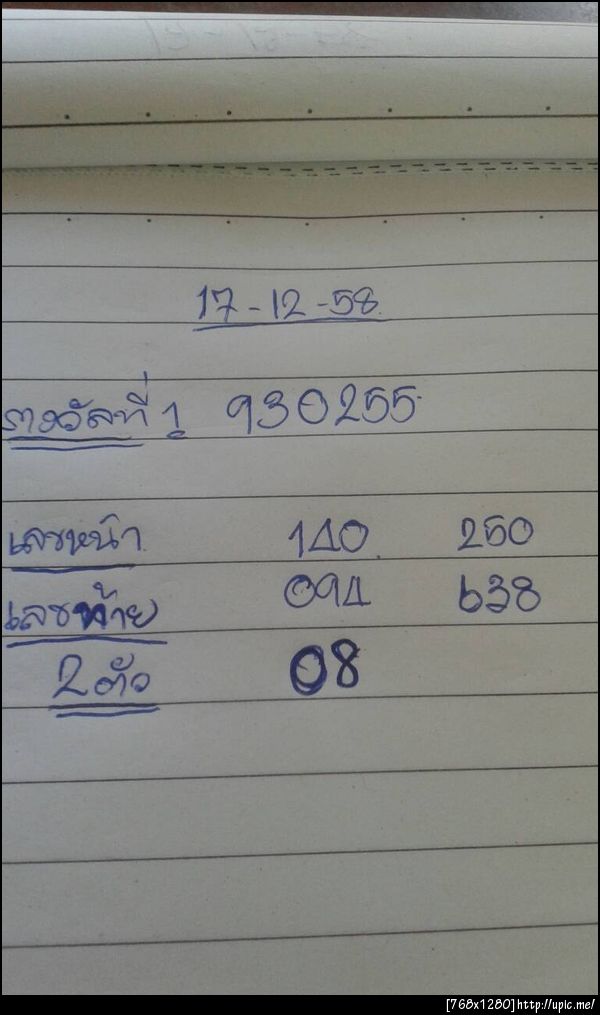 17-12-58
รางวัลที่ 1 930255
เลขหน้า 140 250
เลขท้าย 094 638
2 ตัว 08
[768x1280]http://upic.me/